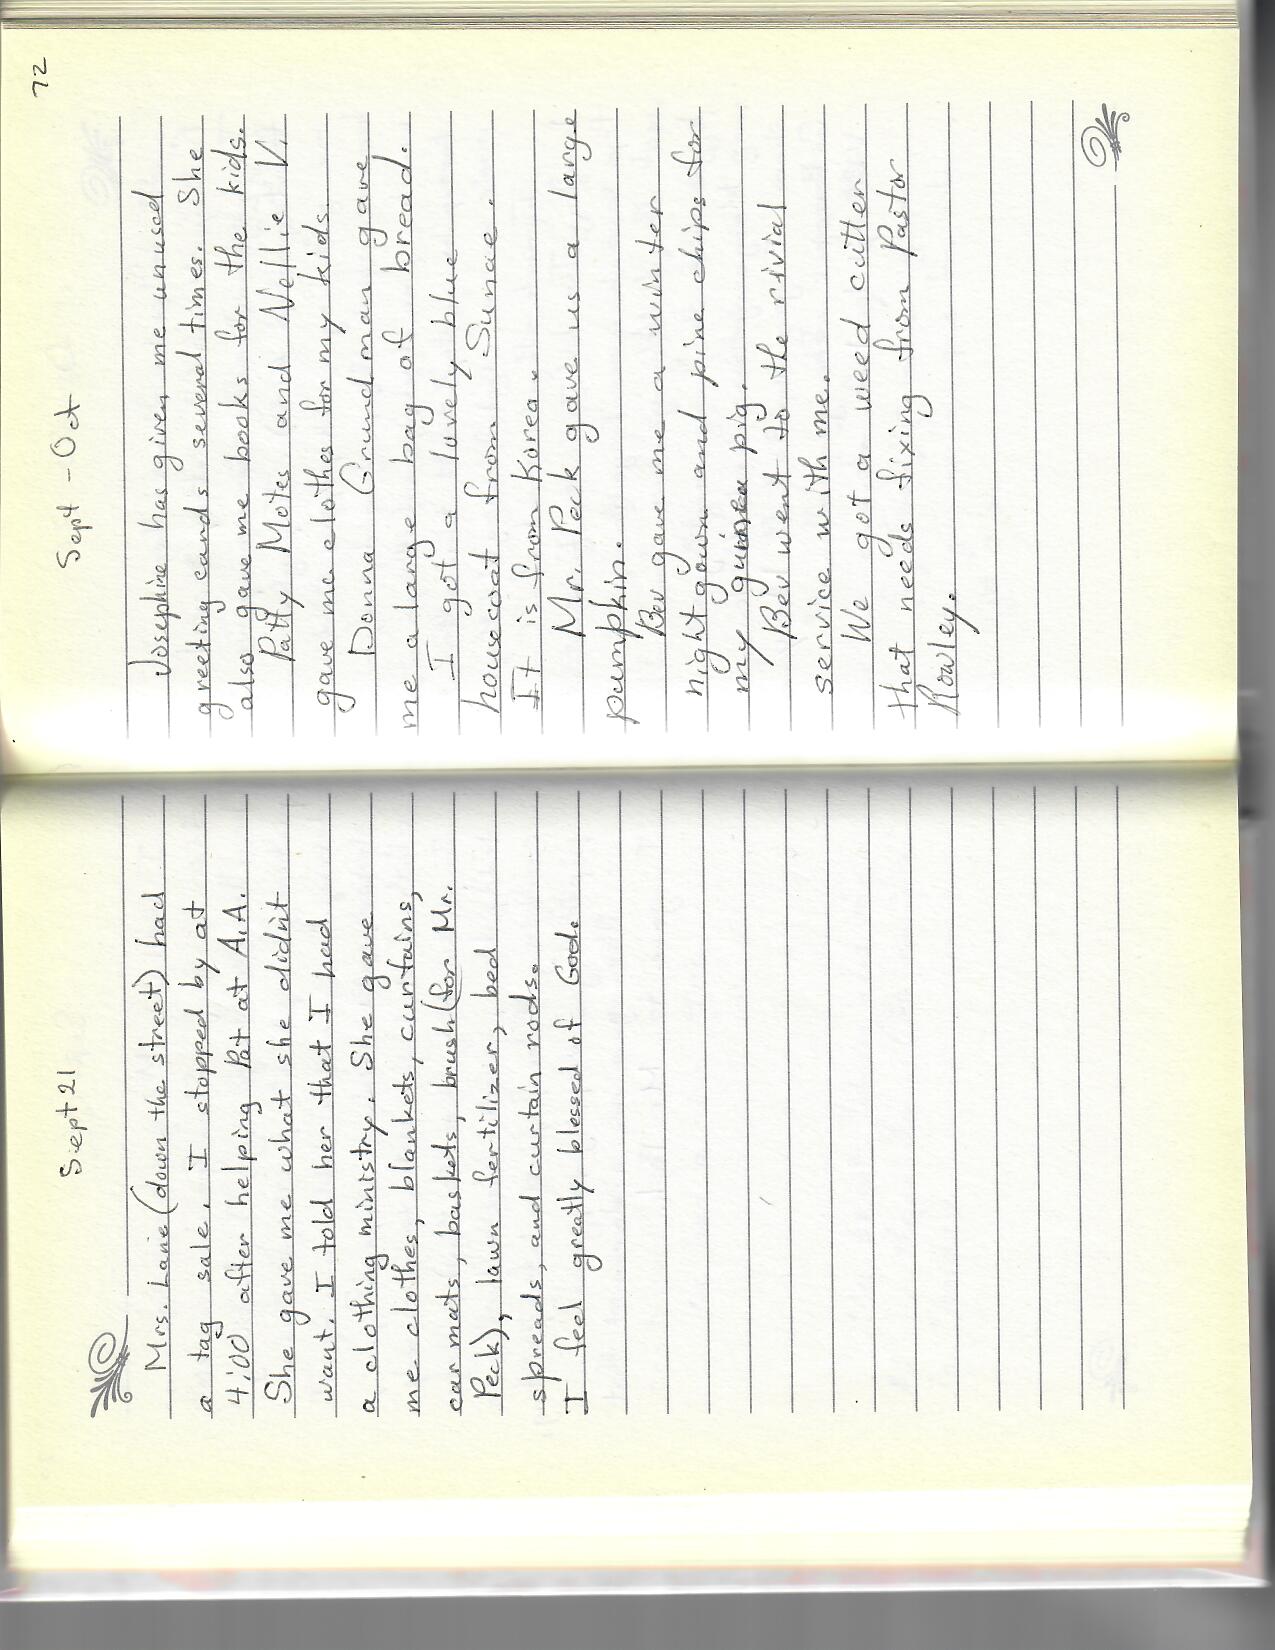 Sept 21
Mrs. Lane (down the street) had
a tag sale. I stopped by at
4:00 after helping Pat at A.A.
She gave me what she didn't
want. I told her that I had
a clothing ministry. She gave
me clothes, blankets, curtains,
car mats, baskets, brush (for Mr.
Peck), lawn fertilizer, bed
spreads, and curtain rods.
I feel greatly blessed of God.
72
Sept - Oct
Josephine has given me unused
greeting cards several times. She
also gave me books for the kids.
Patty Motes and Nellie V.
gave me clothes for my kids.
Donna Grundman gave
me a large bag of bread.
I got a lovely blue
housecoat from Sunae.
It is from Korea.
Mr. Peck gave us a large
pumpkin.
Bev gave me a winter
night gown and pine chips for
my guinea pig.
Bev went to the rivial
service with me.
We got a weed cutter
that needs fixing from Pastor
Rowley.